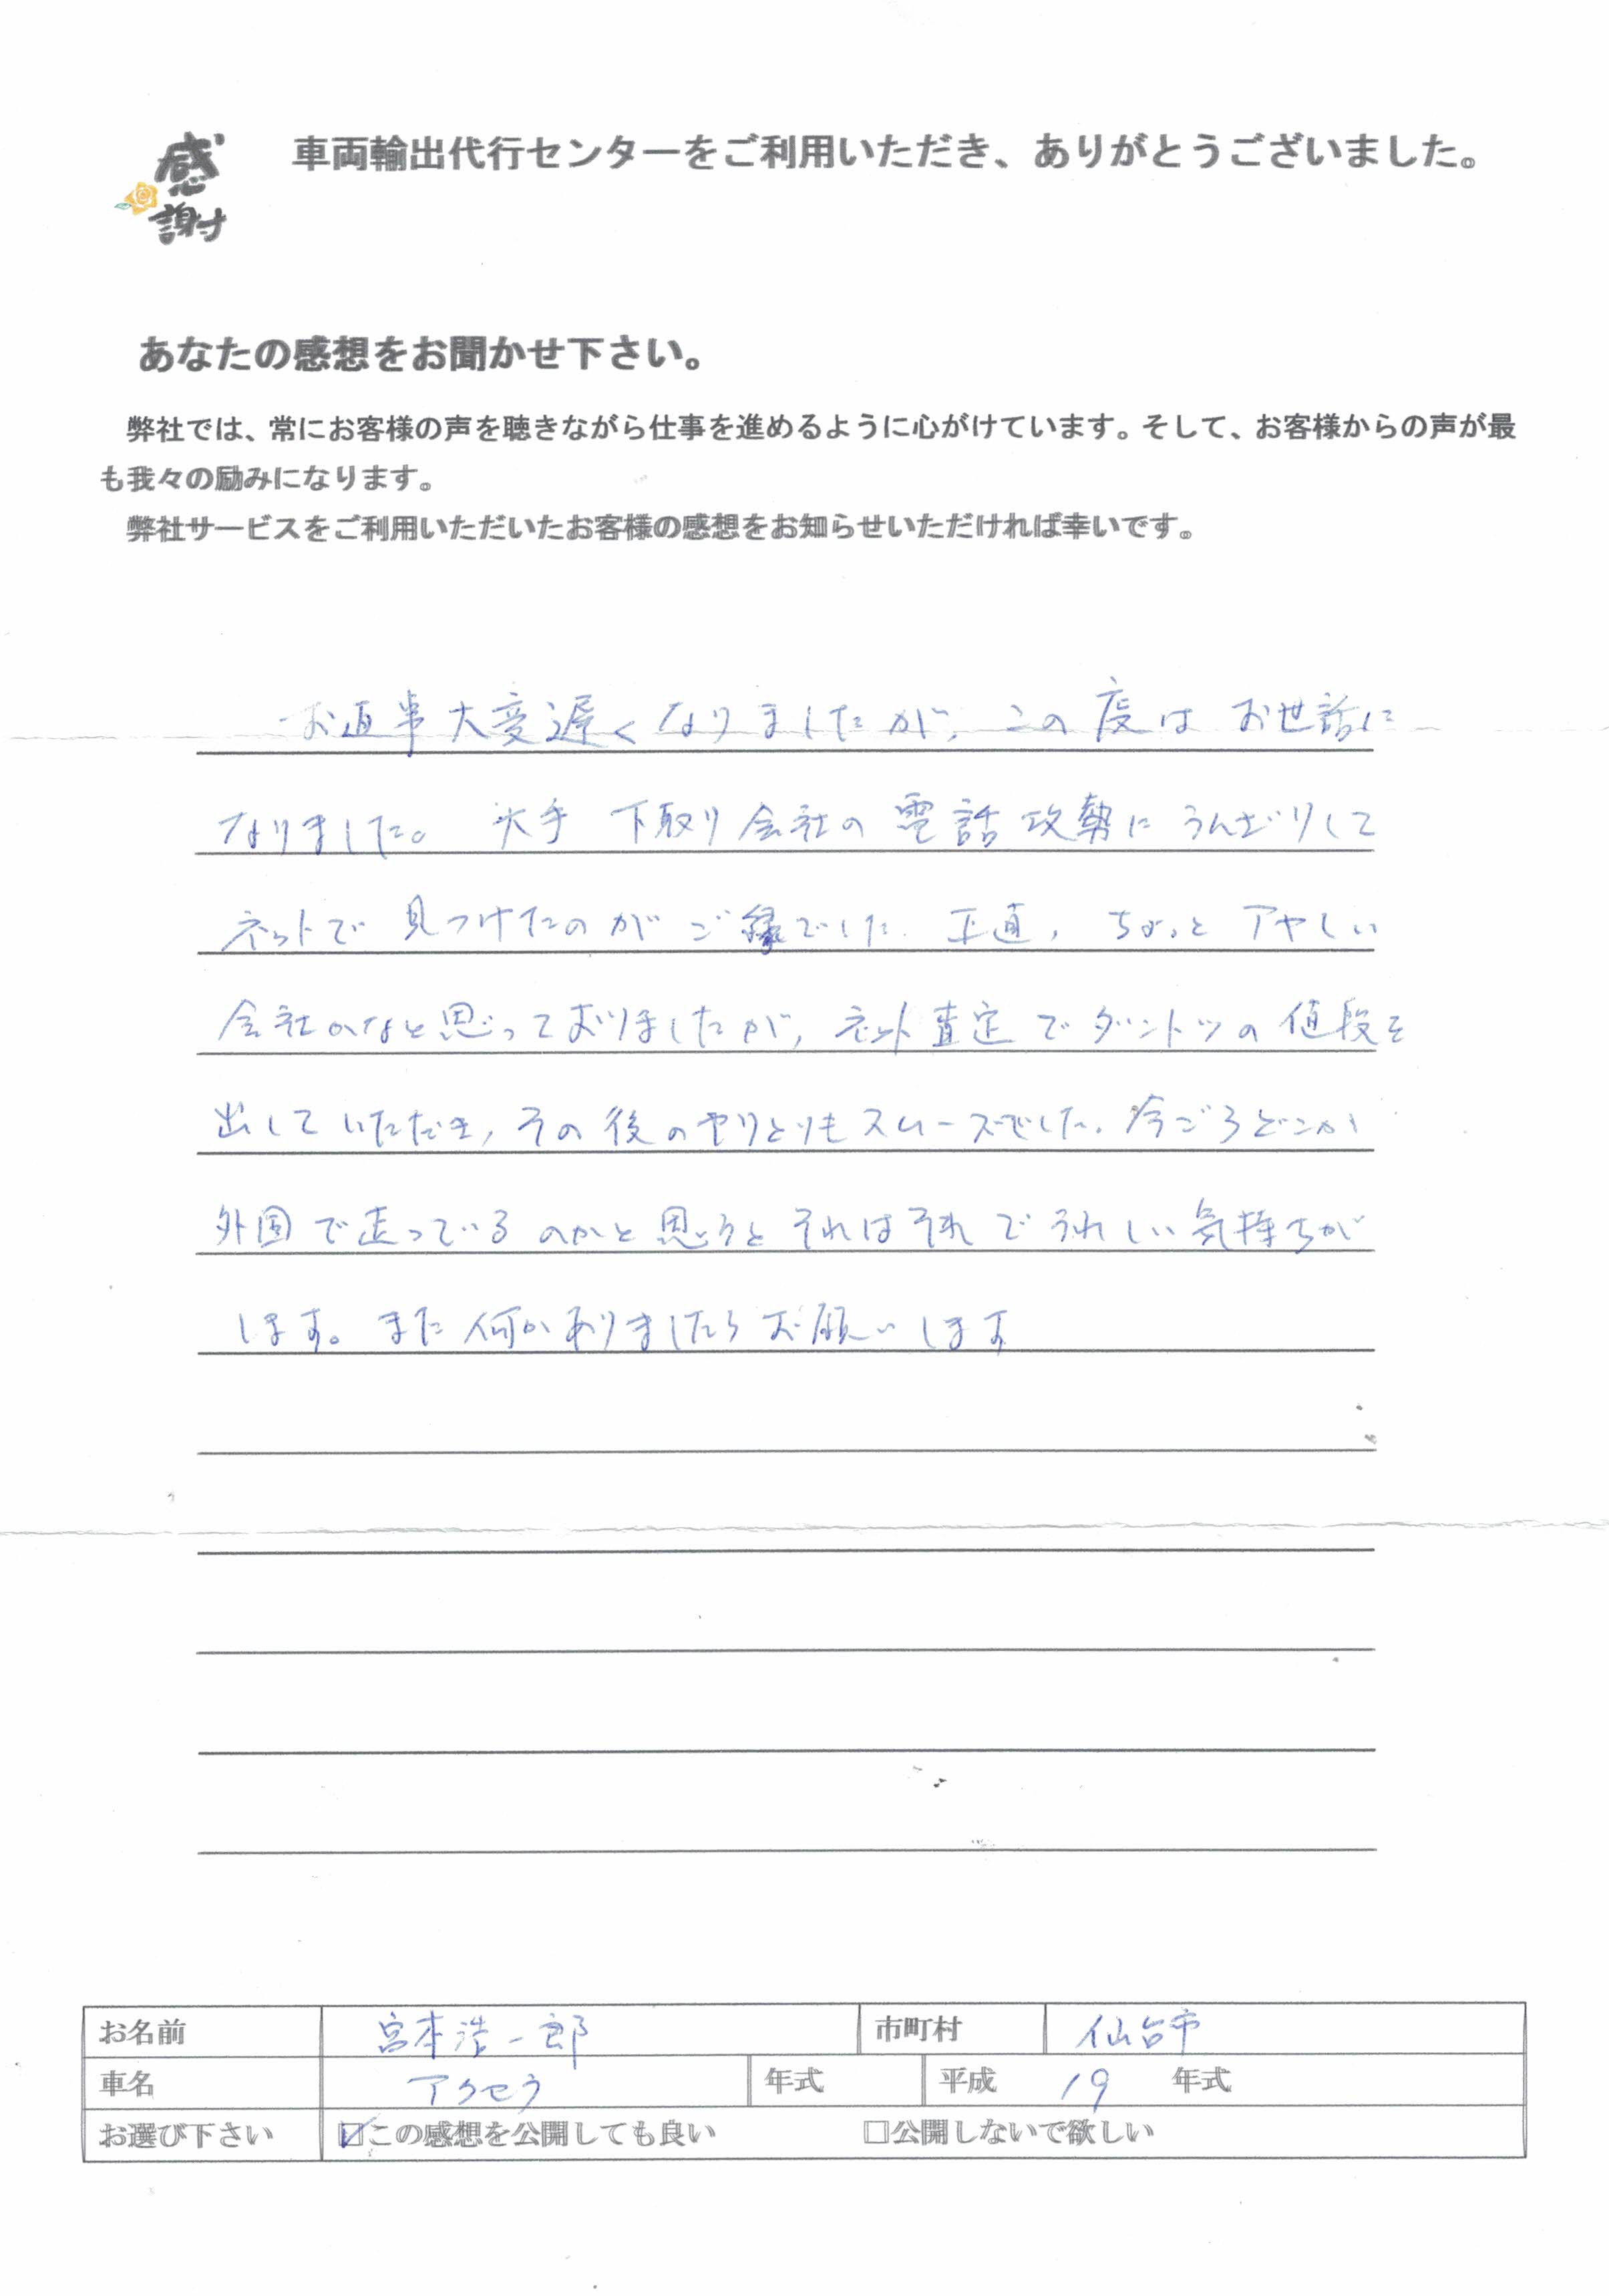 感謝
車両輸出代行センターをご利用いただき、ありがとうございました。
あなたの感想をお聞かせ下さい。
弊社では、常にお客様の声を聴きながら仕事を進めるように心がけています。そして、お客様からの声が最
も我々の励みになります。
弊社サービスをご利用いただいたお客様の感想をお知らせいただければ幸いです。
お返事大変遅くなりましたが、この度はお世話に
なりました。大手下取り会社の電話攻勢にうんざりして
ネットで見つけたのがご縁でした。正直、ちょっとアヤしい
会社かなと思っておりましたが、ネット査定でダントツの値段を
出していただき、その後のやりとりもスムーズでした。今ごろどこか
外国で走っているのかと思うとそれはそれでうれしい気持ちが
します。また何かありましたらお願いします
お名前 宮本浩一郎 市町村 仙台市
車名 アクセラ 年式 平成 19 年式
お選び下さい ☑この感想を公開しても良い □公開しないで欲しい